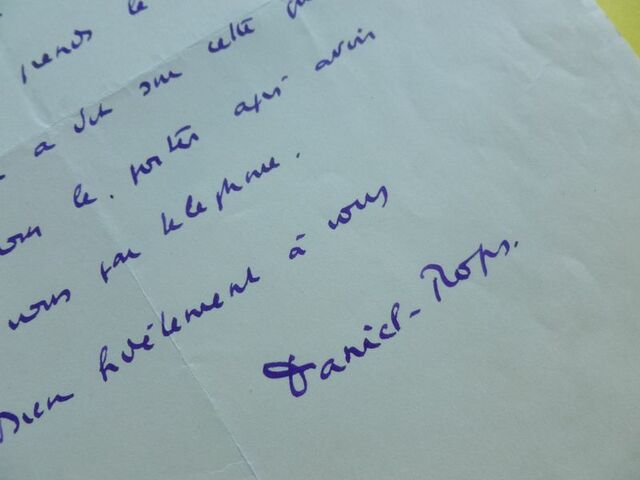 prends le
a dit sur cette
vous le porter après avoir
vous par telephone.
Bien fidèlement à vous
Daniel-Rops.